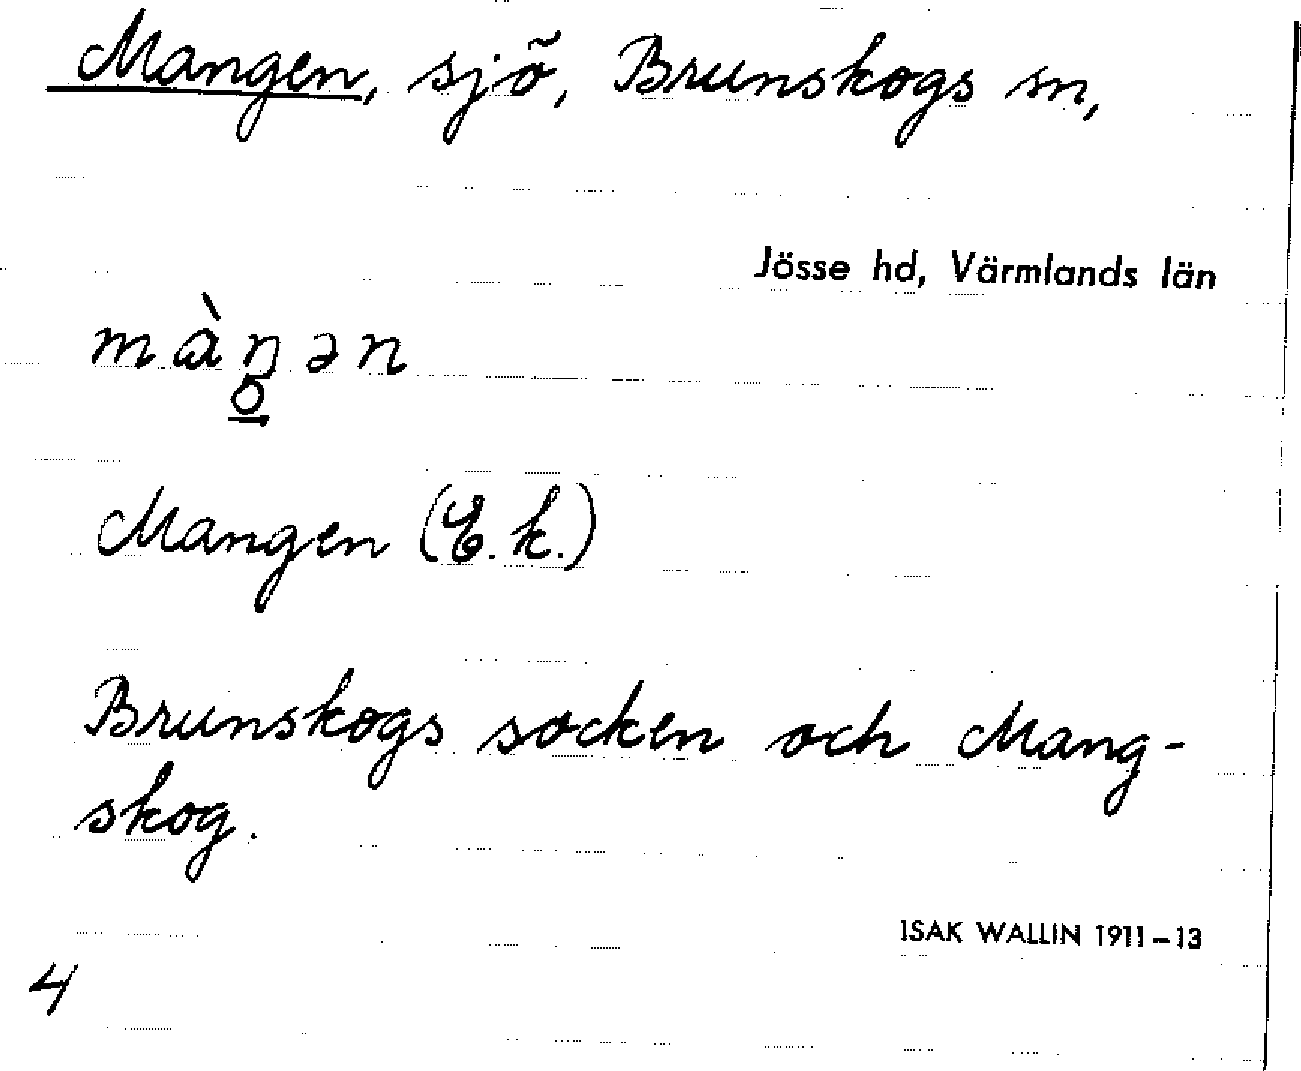 Mangen, sjö, Brunskogs sn,
Jösse hd, Värmlands län
màŋən
o
Mangen (E.k.)
Brunskogs socken och Mang-
skog.
ISAK WALLIN 1911-13
4